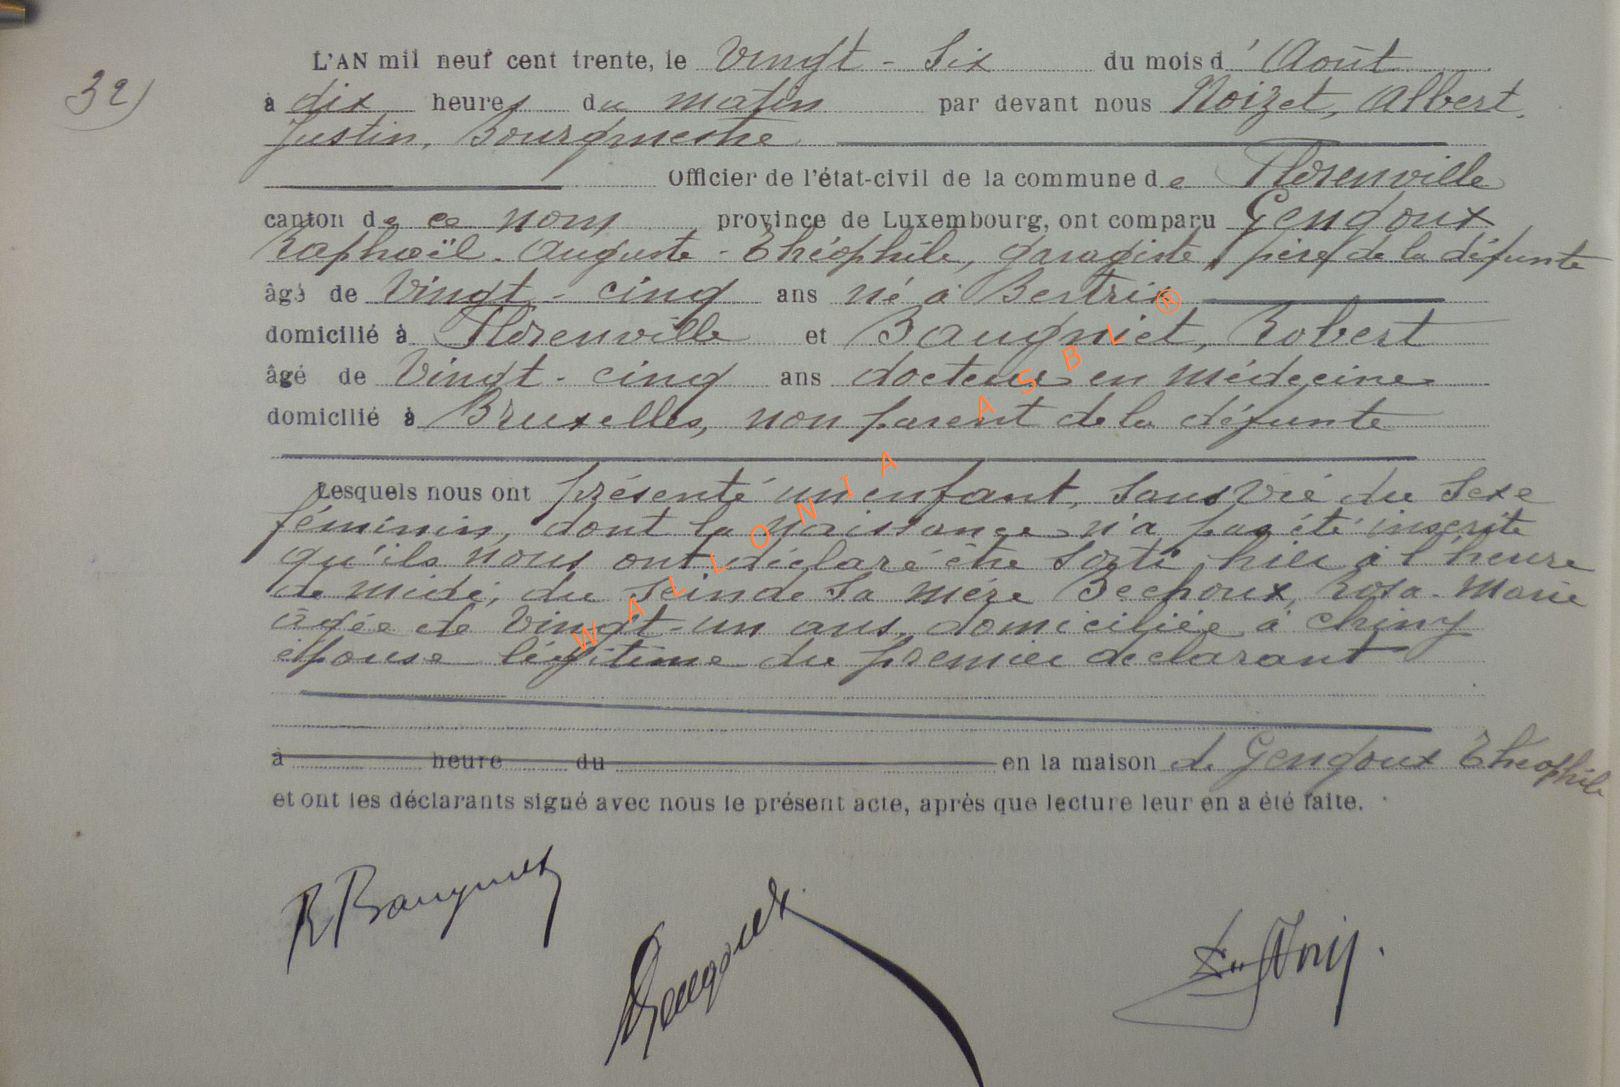 32)
L'AN mil neuf cent trente, le Vingt - Six du mois d' Août
à dix heures du matin par devant nous Noizet, Albert,
Justin, Bourgmestre
Officier de l'état-civil de la commune de Florenville
canton de ce nom province de Luxembourg, ont comparu Gengoux
Raphaël - Auguste - Théophile, garagiste, père de la défunte
âgé de Vingt - cinq ans né à Bertrix
domicilié à Florenville et Baugniet, Robert
âgé de Vingt - cinq ans docteur en médecine
domicilié à Bruxelles, non parent de la défunte
Lesquels nous ont présenté un enfant, sans vie du sexe
féminin, dont la naissance n'a pas été inscrite
qu'ils nous ont déclaré être sorti hier à l'heure
de midi, du sein de sa mère Bechoux, Rosa - Marie
âgée de Vingt-un ans, domiciliée à Chiny
épouse légitime du premier déclarant
à heure du en la maison de Gengoux Théophile
et ont les déclarants signé avec nous le présent acte, après que lecture leur en a été faite.
R Baugniet
Gengoux
WALLONIA ASBL ®